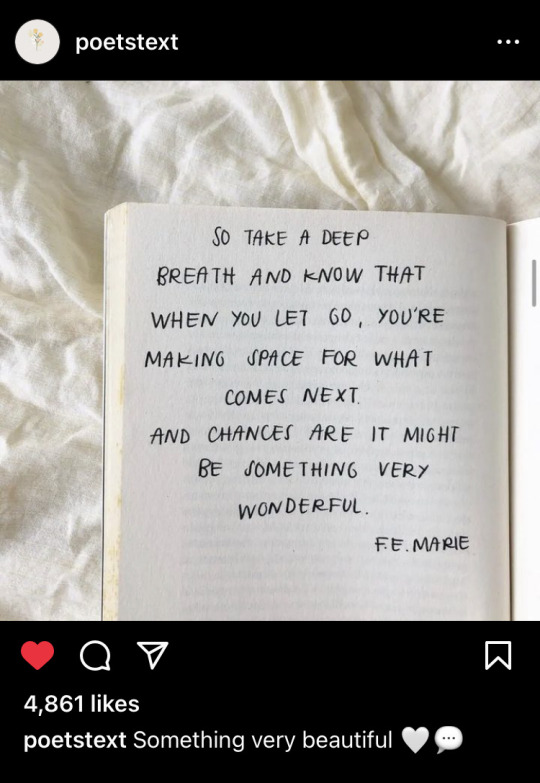 poetstext
SO TAKE A DEEP
BREATH AND KNOW THAT
WHEN YOU LET GO, YOU'RE
MAKING SPACE FOR WHAT
COMES NEXT.
AND CHANCES ARE IT MIGHT
BE SOMETHING VERY
WONDERFUL.
F.E. MARIE
4,861 likes
poetstext Something very beautiful 🤍💬